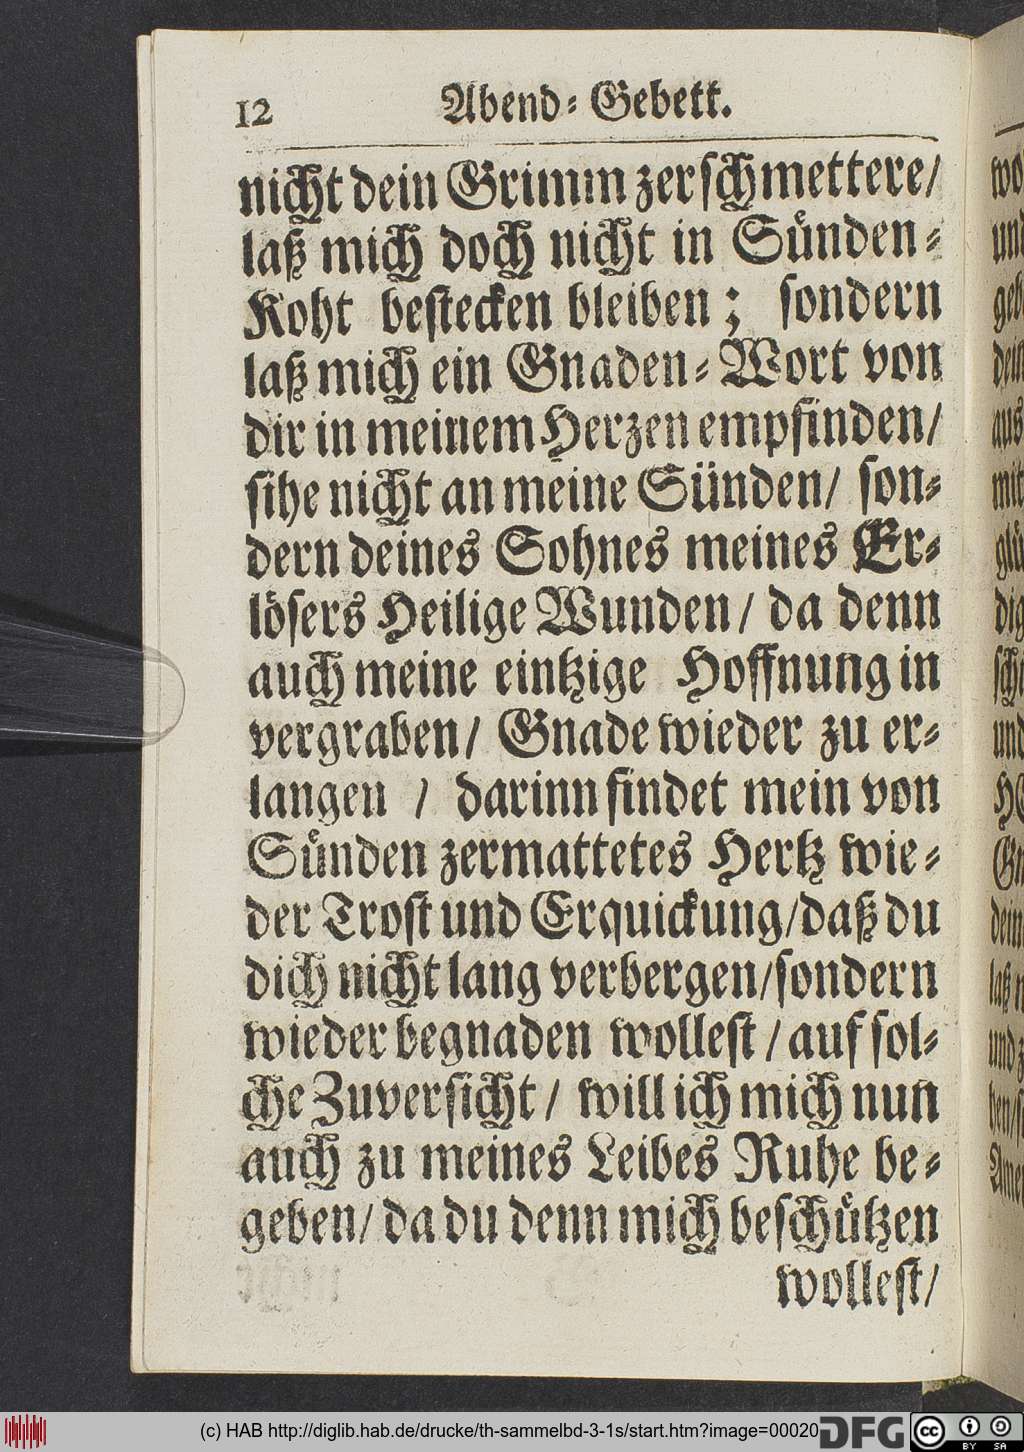 12 Abend-Gebett.
nicht dein Grimm zerschmettere/
laß mich doch nicht in Sünden-
Koht bestecken bleiben; sondern
laß mich ein Gnaden-Wort von
dir in meinem Herzen empfinden/
sihe nicht an meine Sünden/ son-
dern deines Sohnes meines Er-
lösers Heilige Wunden/ da denn
auch meine eintzige Hoffnung in
vergraben/ Gnade wieder zu er-
langen / darinn findet mein von
Sünden zermattetes Hertz wie-
der Trost und Erquickung/daß du
dich nicht lang verbergen/sondern
wieder begnaden wollest / auf sol-
che Zuversicht/ will ich mich nun
auch zu meines Leibes Ruhe be-
geben/ da du denn mich beschützen
wollest/
(c) HAB http://diglib.hab.de/drucke/th-sammelbd-3-1s/start.htm?image=00020
DFG
cc BY SA